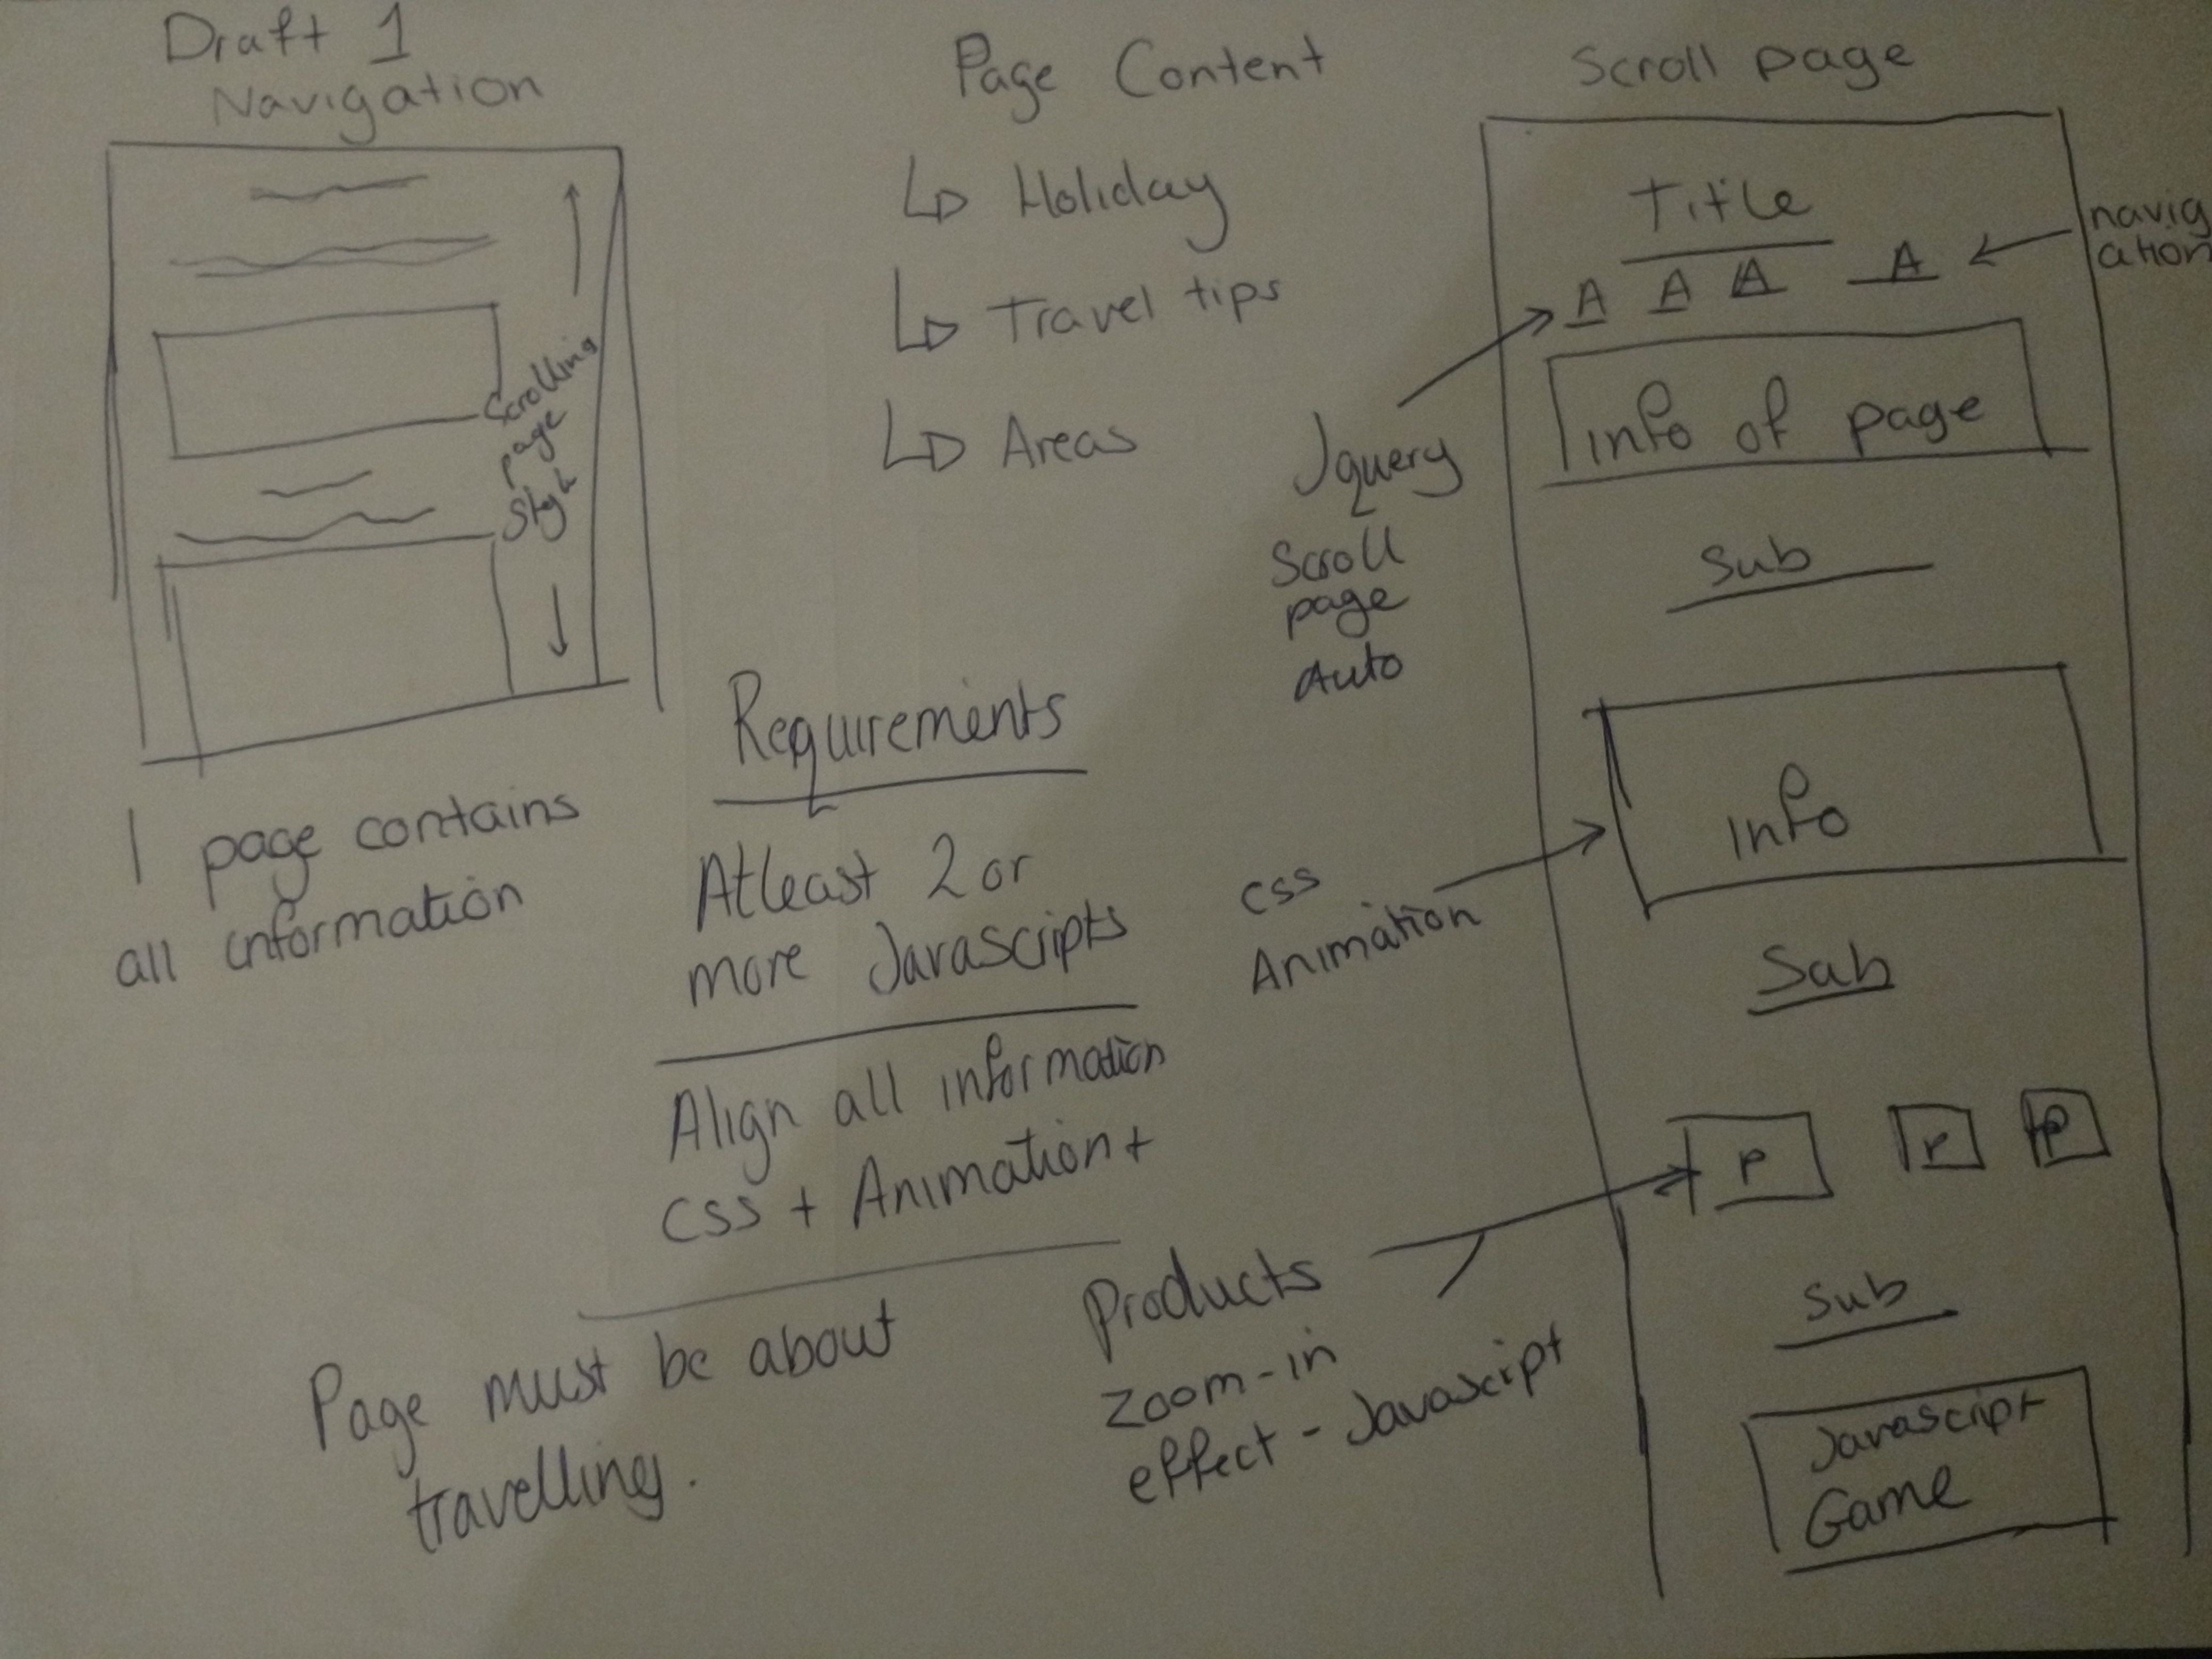 Draft 1
Navigation
Scrolling
page
Style
1 page contains
all information
Page Content
Holiday
Travel tips
Areas
Requirements
Atleast 2 or
more Javascripts
Align all information
CSS + Animation +
Page must be about
travelling.
Scroll page
Title
A A A A
navig
ation
Jquery
Scroll
page
Auto
info of page
Sub
Info
CSS
Animation
Sub
P P P
Products
Zoom-in
effect - Javascript
Sub
Javascript
Game